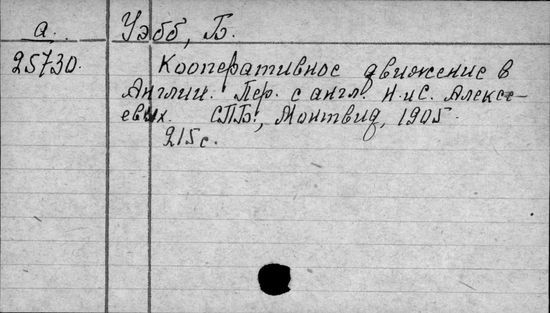 а. Уэбб, Б.
25730. Кооперативное движение в
Англии. Пер. с англ. Н. и С. Алексе-
евых. СПБ., Монтвид, 1905.
215 с.